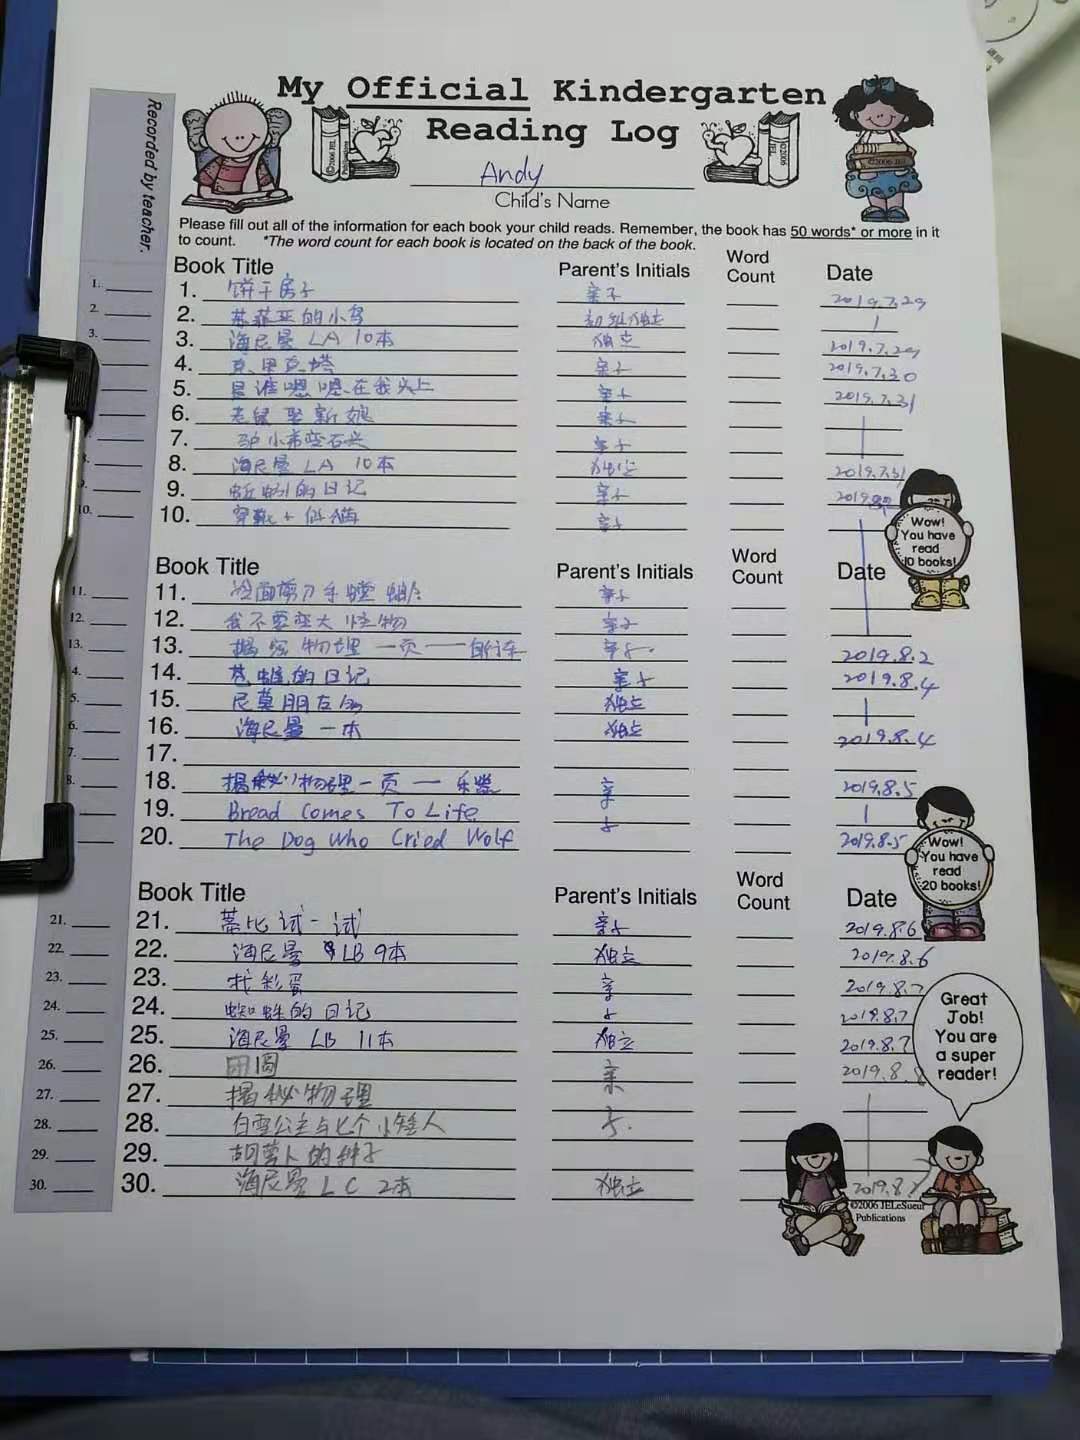 My Official Kindergarten
Reading Log
©2006 JEL Publications
©2006 JEL
©2006 JEL
Andy
Child's Name
Recorded by teacher.
Please fill out all of the information for each book your child reads. Remember, the book has 50 words* or more in it
to count. *The word count for each book is located on the back of the book.
Book Title Parent's Initials Word Count Date
1. 1. 饼干房子 亲子 2019.7.29
2. 2. 苏菲亚的小鸟 独立
3. 3. 海尼曼 LA 10本 独立 2019.7.29
4. 克里克塔 亲子 2019.7.30
5. 是谁嗯嗯在我头上 亲子 2019.7.31
6. 老鼠娶新娘 亲子
7. 驴小弟变石头 亲子
8. 8. 海尼曼 LA 10本 独立 2019.7.31
9. 9. 蚯蚓的日记 亲子 2019.8
10. 10. 穿靴子的猫 亲子
Wow! You have read 10 books!
Book Title Parent's Initials Word Count Date
11. 11. 冷面剪刀手螳螂 亲子
12. 12. 我不要变大怪物 亲子
13. 13. 揭密物理一页一 亲子. 2019.8.2
4. 14. 苍蝇的日记 亲子 2019.8.4
5. 15. 尼莫朋友 独立
6. 16. 海尼曼 一本 独立 2019.8.4
7. 17.
8. 18. 揭秘物理一页一乐器 亲 2019.8.5
19. Bread Comes To Life 子
20. The Dog Who Cried Wolf 2019.8.5
Wow! You have read 20 books!
Book Title Parent's Initials Word Count Date
21. 21. 蒂比试一试 亲子 2019.8.6
22. 22. 海尼曼 LB 9本 独立 2019.8.6
23. 23. 找彩蛋 亲 2019.8.7
24. 24. 蜘蛛的日记 子 2019.8.7
25. 25. 海尼曼 LB 11本 独立 2019.8.7
26. 26. 亲 2019.8.8
27. 27. 揭秘物理
28. 28. 白雪公主与七个小矮人 子.
29. 29. 胡萝卜的种子
30. 30. 海尼曼 LC 2本 独立 2019.8.
Great Job! You are a super reader!
©2006 JELeSueur
Publications